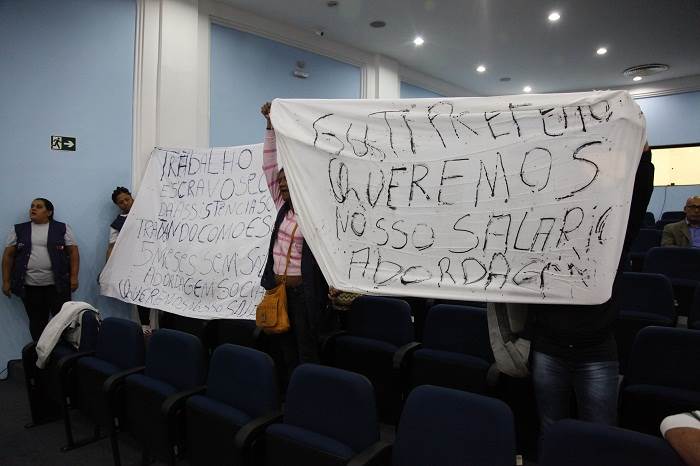 TRABALHO
ESCRAVO SEC
DA ASSISTÊNCIA S
TRATANDO COMO ES
5 MESES SEM SA
ABORDAGEM SOCIA
QUEREMOS NOSSO SALA
GUTI PREFEITO
QUEREMOS
NOSSO SALARIO
ABORDAGEM